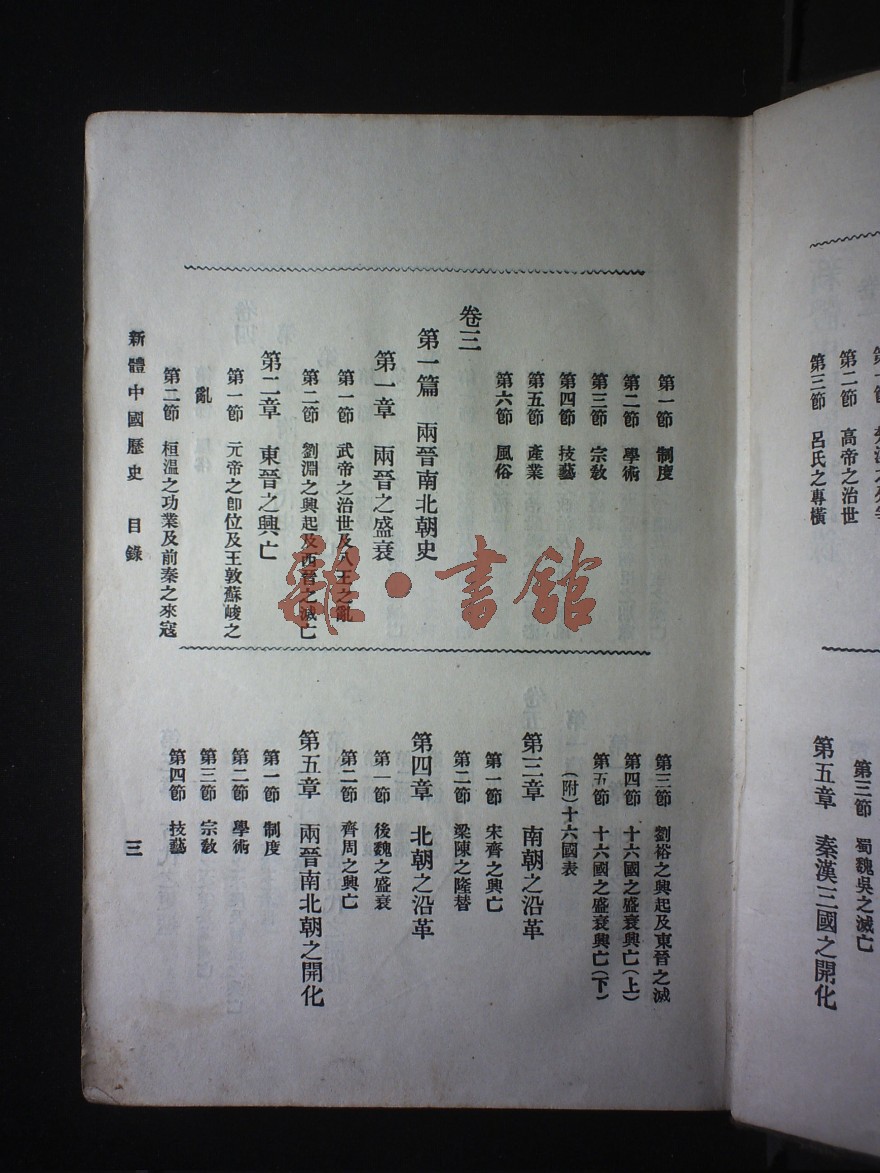 第二節　高帝之治世
第三節　呂氏之專橫
第三節　蜀魏吳之滅亡
第五章　秦漢三國之開化
第一節　制度
第二節　學術
第三節　宗教
第四節　技藝
第五節　產業
第六節　風俗
卷三
第一篇　兩晉南北朝史
第一章　兩晉之盛衰
第一節　武帝之治世及八王之亂
第二節　劉淵之興起及西晉之滅亡
第二章　東晉之興亡
第一節　元帝之卽位及王敦蘇峻之
亂
第二節　桓溫之功業及前秦之來寇
第三節　劉裕之興起及東晉之滅
第四節　十六國之盛衰興亡(上)
第五節　十六國之盛衰興亡(下)
(附)十六國表
第三章　南朝之沿革
第一節　宋齊之興亡
第二節　梁陳之隆替
第四章　北朝之沿革
第一節　後魏之盛衰
第二節　齊周之興亡
第五章　兩晉南北朝之開化
第一節　制度
第二節　學術
第三節　宗教
第四節　技藝
新體中國歷史　目錄
三
雜·書館